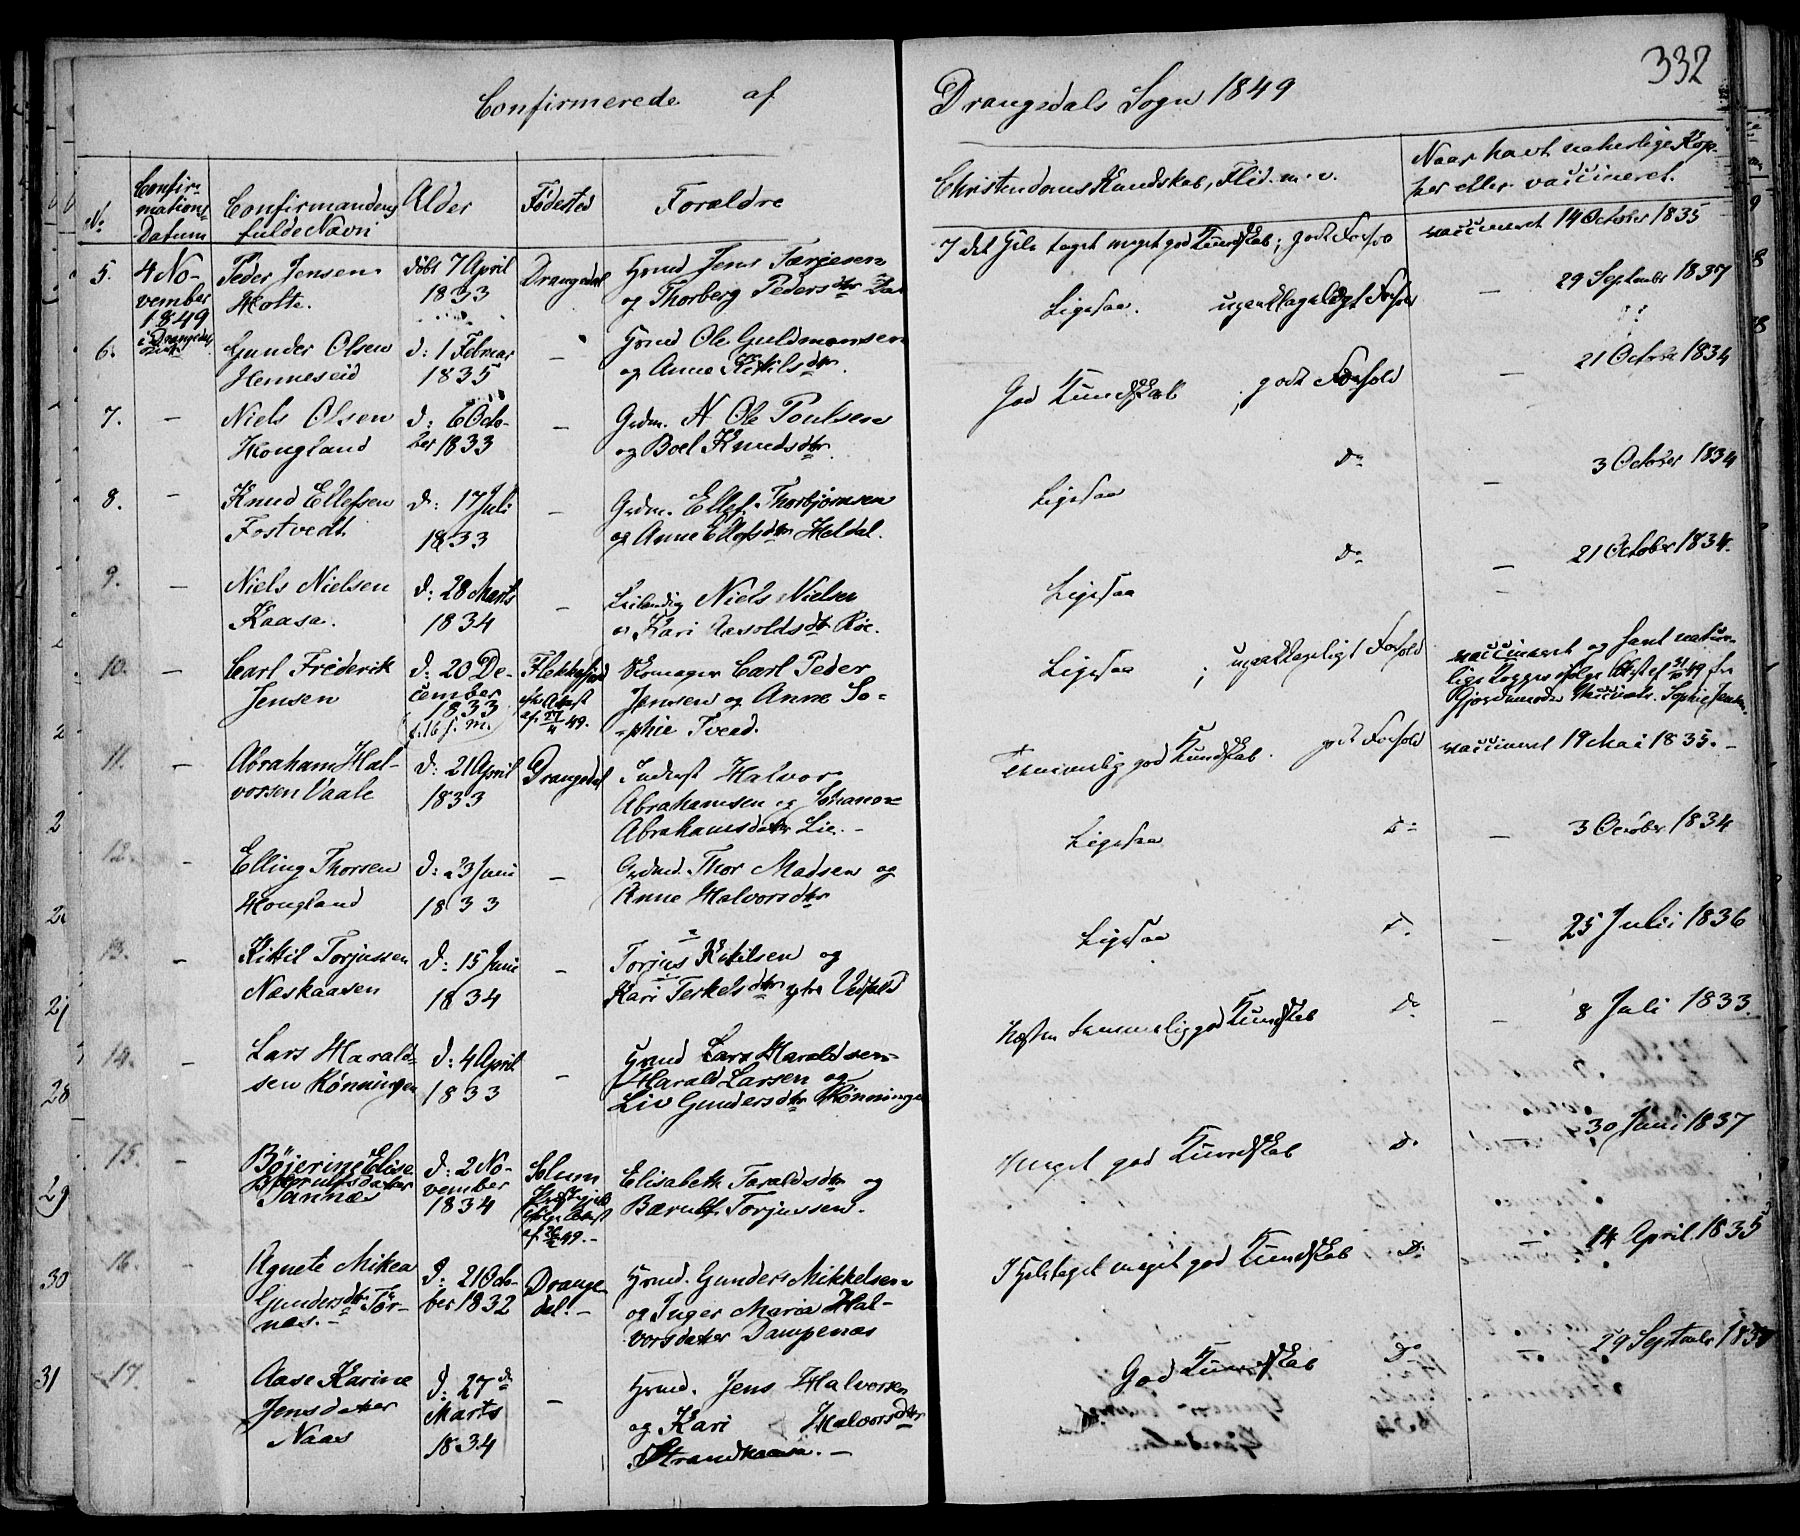 332
Confirmerede af Drangedals Sogn 1849
No
Confir-
mations-
Datum
Confirmandens
fulde Navn
Alder
Fødested
Forældre
Christendoms Kundskab, Flid m. v.
Naar havt naturlige Kop-
per eller vaccineret.
5.
4 No-
vember
1849
i Drangedal
Peder Jensen
Holte.
døbt 7 April
1833
Drangedal
Grmd Jens Terjesen
og Thorberg Pedersdtr
I det Hele taget meget god Kundskab; godt Forhold
vaccineret 14 October 1835
6.
Gunder Olsen
Henneseid
d: 1 Februar
1835
—
Grmd Ole Guldmansen
og Anne Kittilsdtr.
Ligesaa. upaaklageligt Forhold
— 29 September 1837
7. —
Niels Olsen
Hougland
d: 6 Octo-
ber 1833
—
Grdm. N Ole Poulsen
og Boel Knudsdtr.
God Kundskab ; godt Forhold
— 21 October 1834
8. —
Knud Ellefsen
Fostvedt
d: 17 Juli
1833
—
Grdm. Ellef Thorbjørnsen
og Anne Ellefsdtr Heldal.
Ligesaa Do
— 3 October 1834
9. —
Niels Nielsen
Kaasa.
d: 28 Marts
1834
—
Leilending Niels Nielsen
og Kari Aasoldsdtr Røe.
Ligesaa Do
— 21 October 1834.
10. —
Carl Friderik
Jensen
d: 20 De-
cember
1833
(f. 16 s. m.)
Flekkefjord
Attest
af 49.
Skomager Carl Peder
Jensen og Anne So-
phie Tveed.
Ligesaa ; upaaklageligt Forhold
vaccineret og havt natur-
lige Kopper ifølge Attest af 31/10 49 fra
Gjordemoder Sophie Jensen.
11. —
Abraham Hal-
vorsen Vaale
d: 21 April
1833
Drangedal
Inderst Halvor
Abrahamsen og Johanne
Abrahamsdatter Lie. —
Temmelig god Kundskab. godt Forhold
vaccineret 19 Mai 1835. —
12. —
Elling Thorsen
Hougland
d: 23 Juni
1833
—
Grdmd. Thor Madsen og
Anne Halvorsdtr
Ligesaa Do
— 3 October 1834
13. —
Kittil Torjussen
Næskaasen
d: 15 Juni
1834
—
Torjus Kittilsen og
Kari Terkelsdtr
Ligesaa Do
— 25 Julii 1836
14. —
Lars Harald-
sen Rønningen
d: 4 April
1833
—
Grmd Lars Haraldsen
Harald Larsen og
Liv Gundersdtr Rønningen
Næsten temmelig god Kundskab Do
— 8 Juli 1833.
15. —
Bøjerine Elise
Børulfsdatter
Tannæs
d: 2 No-
vember
1834
Solum
Præstegjeld
ifølge Attest
af 49. —
Elisabeth Taraldsdtr og
Bærulf Torjussen.
Meget god Kundskab Do
— 30 Juni 1837
16. —
Agnete Mikea
Gundersdtr Tør-
næs. —
d: 21 Octo-
ber 1832
Drange-
dal. —
Grmd. Gunder Mikkelsen
og Inger Maria Hal-
vorsdatter Dampenæs
I Heletaget meget god Kundskab Do
— 14 April 1835
17. —
Aase Karine
Jensdatter
Naas
d: 27de
Marts
1834
—
Grmd. Jens Halvorsen
og Kari Halvorsdtr
Strandkaasa. —
God Kundskab Do
— 29 September
29
30
31